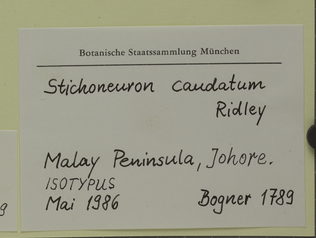 Botanische Staatssammlung München
Stichoneuron caudatum
Ridley
Malay Peninsula, Johore.
ISOTYPUS
Mai 1986 Bogner 1789
9